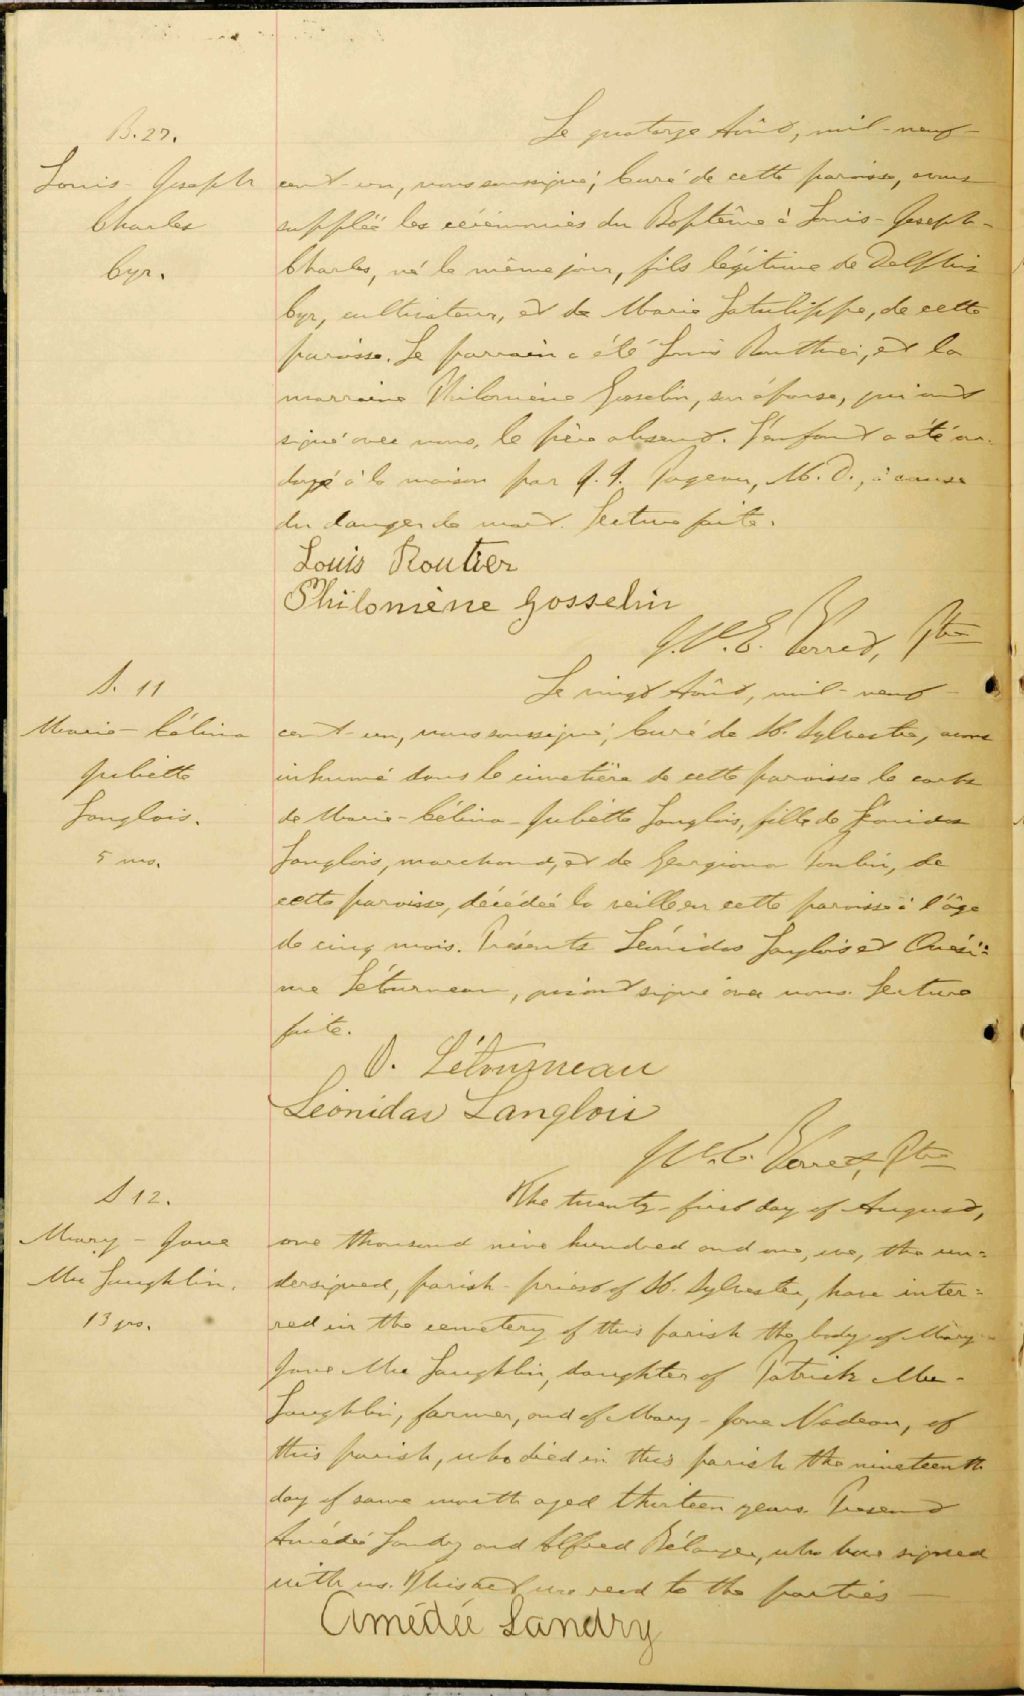 B. 27.
Louis-Joseph
Charles
Cyr.
Le quatorze Août, mil-neuf-
cent-un, nous soussigné, Curé de cette paroisse, avons
supplée les cérémonies du Baptême à Louis-Joseph-
Charles, né le même jour, fils légitime de Delphis
Cyr, cultivateur, et de Marie Latulippe, de cette
paroisse. Le parrain a été Louis Routhier, et la
marraine Philomène Gosselin, son épouse, qui ont
signé avec nous, le père absent. L'enfant a été on-
doyé à la maison par J. J. Pageau, M. D., à cause
du danger de mort. Lecture faite.
Louis Routier
Philomène Gosselin
Verret, Ptre
S. 11
Marie-Célina
Juliette
Langlois.
5 ms.
Le vingt Août, mil-neuf-
cent-un, nous soussigné, Curé de St. Sylvestre, avons
inhumé dans le cimetière de cette paroisse le corps
de Marie-Célina-Juliette Langlois, fille de Léonidas
Langlois, marchand, et de Georgiana Poulin, de
cette paroisse, décédée la veille en cette paroisse à l'âge
de cinq mois. Présents Léonidas Langlois et Onési-
me Létourneau, qui ont signé avec nous. Lecture
faite.
O. Létourneau
Léonidas Langlois
Verret, Ptre
S 12.
Mary-Jane
Mc Laughlin.
13 yrs.
The twenty-first day of August,
one thousand nine hundred and one, we, the un-
dersigned, parish-priest of St. Sylvester, have inter-
red in the cemetery of this parish the body of Mary-
Jane Mc Laughlin, daughter of Patrick Mc-
Laughlin, farmer, and of Mary-Jane Nadeau, of
this parish, who died in this parish the nineteenth
day of same month aged thirteen years. Present
Amédée Landry and Alfred Bélanger, who have signed
with us. This act was read to the parties —
Amédée Landry